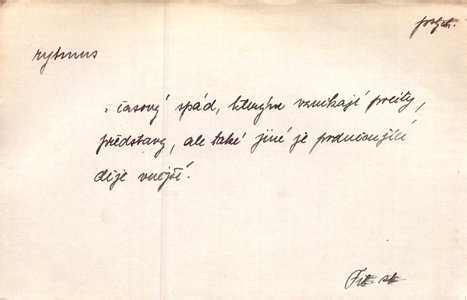 psych.
rytmus
časový spád, kterým vznikají pocity,
představy, ale také jiné je podmiňující
děje vnější.